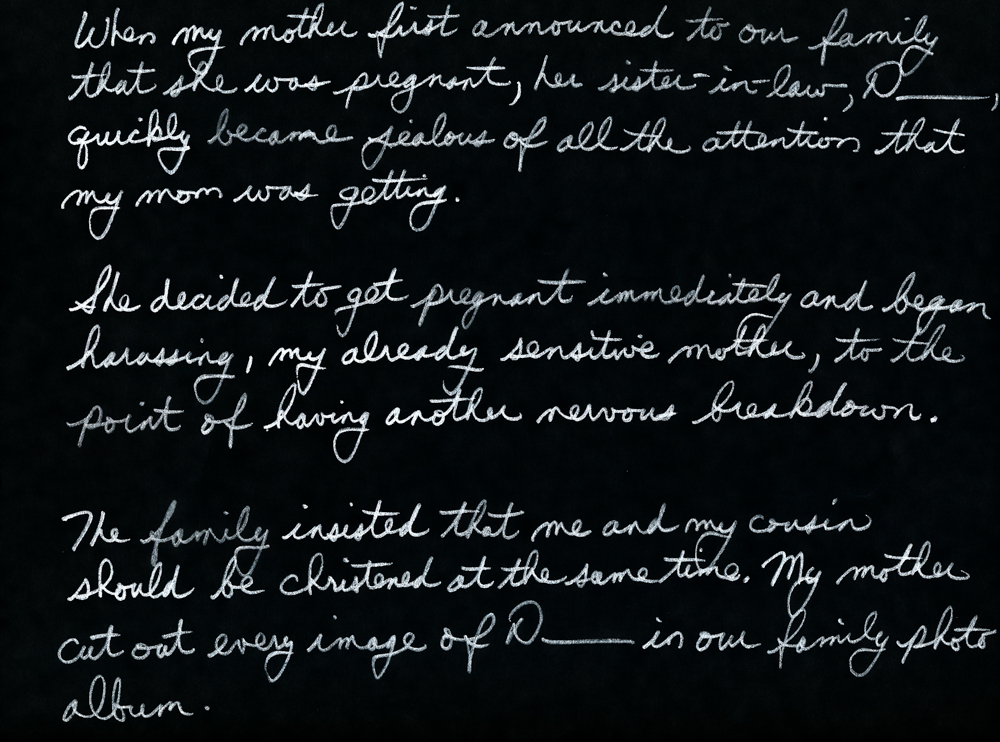 When my mother first announced to our family
that she was pregnant, her sister-in-law, D____,
quickly became jealous of all the attention that
my mom was getting.
She decided to get pregnant immediately and began
harassing, my already sensitive mother, to the
point of having another nervous breakdown.
The family insisted that me and my cousin
should be christened at the same time. My mother
cut out every image of D____ in our family photo
album.